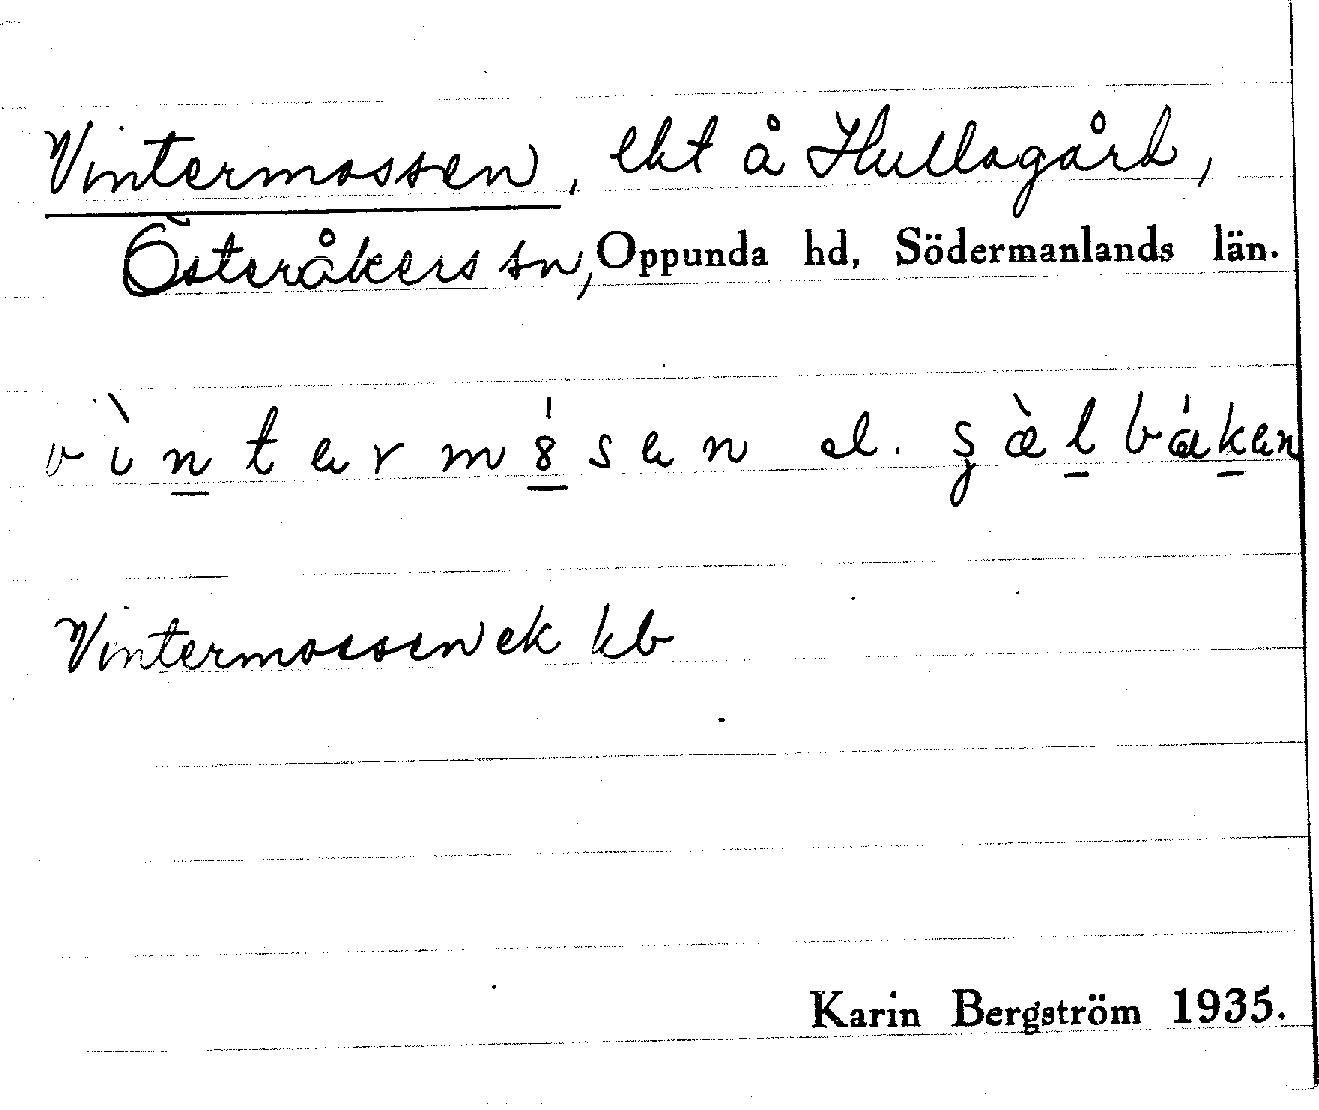 Vintermossen, lht å Hullagård,
Österåkers sn, Oppunda hd, Södermanlands län.
vìntermósen el. şæ̀lbákan
Vintermossen ek kb
Karin Bergström 1935.